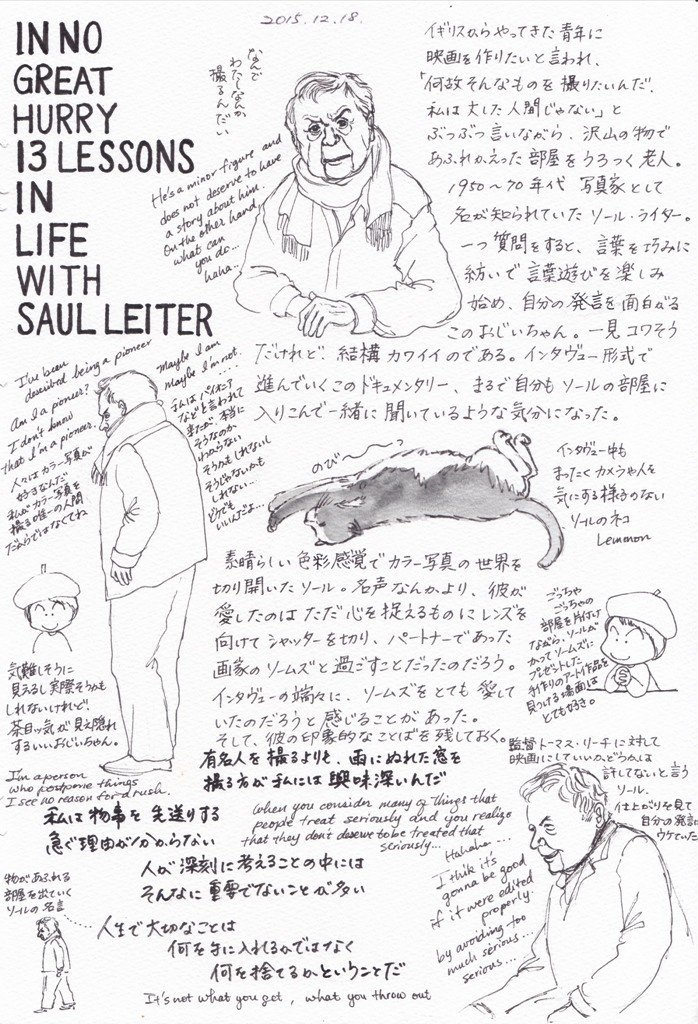 2015.12.18.
IN NO
GREAT
HURRY
13 LESSONS
IN
LIFE
WITH
SAUL LEITER
なんで
わたしなんか
撮るんだい
He's a minor figure and
does not deserve to have
a story about him.
On the other hand,
what can
you do...
haha...
イギリスからやってきた青年に
映画を作りたいと言われ、
「何故そんなものを撮りたいんだ、
私は大した人間じゃない」と
ぶつぶつ言いながら、沢山の物で
あふれかえった部屋をうろつく老人。
1950〜70年代 写真家として
名が知られていたソール・ライター。
一つ質問をすると、言葉を巧みに
紡いで言葉遊びを楽しみ
始め、自分の発言を面白がる
このおじいちゃん。一見コワそう
だけれど、結構カワイイのである。インタヴュー形式で
進んでいくこのドキュメンタリー、まるで自分もソールの部屋に
入りこんで一緒に聞いているような気分になった。
I've been
described being a pioneer
Am I a pioneer?
I don't know
that I'm a pioneer.
Maybe I am
maybe I'm not.
私はパイオニア
などと言われて
きたが、本当に
そうなのか
わからない
そうかもしれないし
そうじゃないかも
しれない…
どうでも
いいんだよ…
人々はカラー写真が
好きなんだ
私がカラー写真を
撮る唯一の人間
だからではなくてね
のび〜〜っ
インタヴュー中も
まったくカメラや人を
気にする様子のない
ソールのネコ
Lemmon
素晴らしい色彩感覚でカラー写真の世界を
切り開いたソール。名声なんかより、彼が
愛したのはただ心を捉えるものにレンズを
向けてシャッターを切り、パートナーであった
画家のソームズと過ごすことだったのだろう。
インタヴューの端々に、ソームズをとても愛して
いたのだろうと感じることがあった。
そして、彼の印象的なことばを残しておく。
ごっちゃ
ごっちゃの
部屋を片付け
ながら、ソールが
かつてソームズに
プレゼントした
手作りのアート作品を
見つける場面は
とても好き。
気難しそうに
見えるし実際そうかも
しれないけれど
茶目ッ気が見え隠れ
するいいおじいちゃん。
有名人を撮るよりも、雨にぬれた窓を
撮る方が私には興味深いんだ
I'm a person
who postpone things
I see no reason for a rush.
私は物事を先送りする
急ぐ理由が分からない
when you consider many of things that
people treat seriously and you realize
that they don't deserve to be treated that
seriously...
人が深刻に考えることの中には
そんなに重要でないことが多い
監督トーマス・リーチに対して
映画にしていいか、どうかは
許してないと言う
ソール。
仕上がりを見て
自分の発言に
ウケていた
Hahaha...
I thik it's
gonna be good
if it were edited
properly.
by avoiding too
much serious...
serious...
物があふれる
部屋を出ていく
ソールの名言
人生で大切なことは
何を手に入れるかではなく
何を捨てるかということだ
It's not what you get, what you throw out